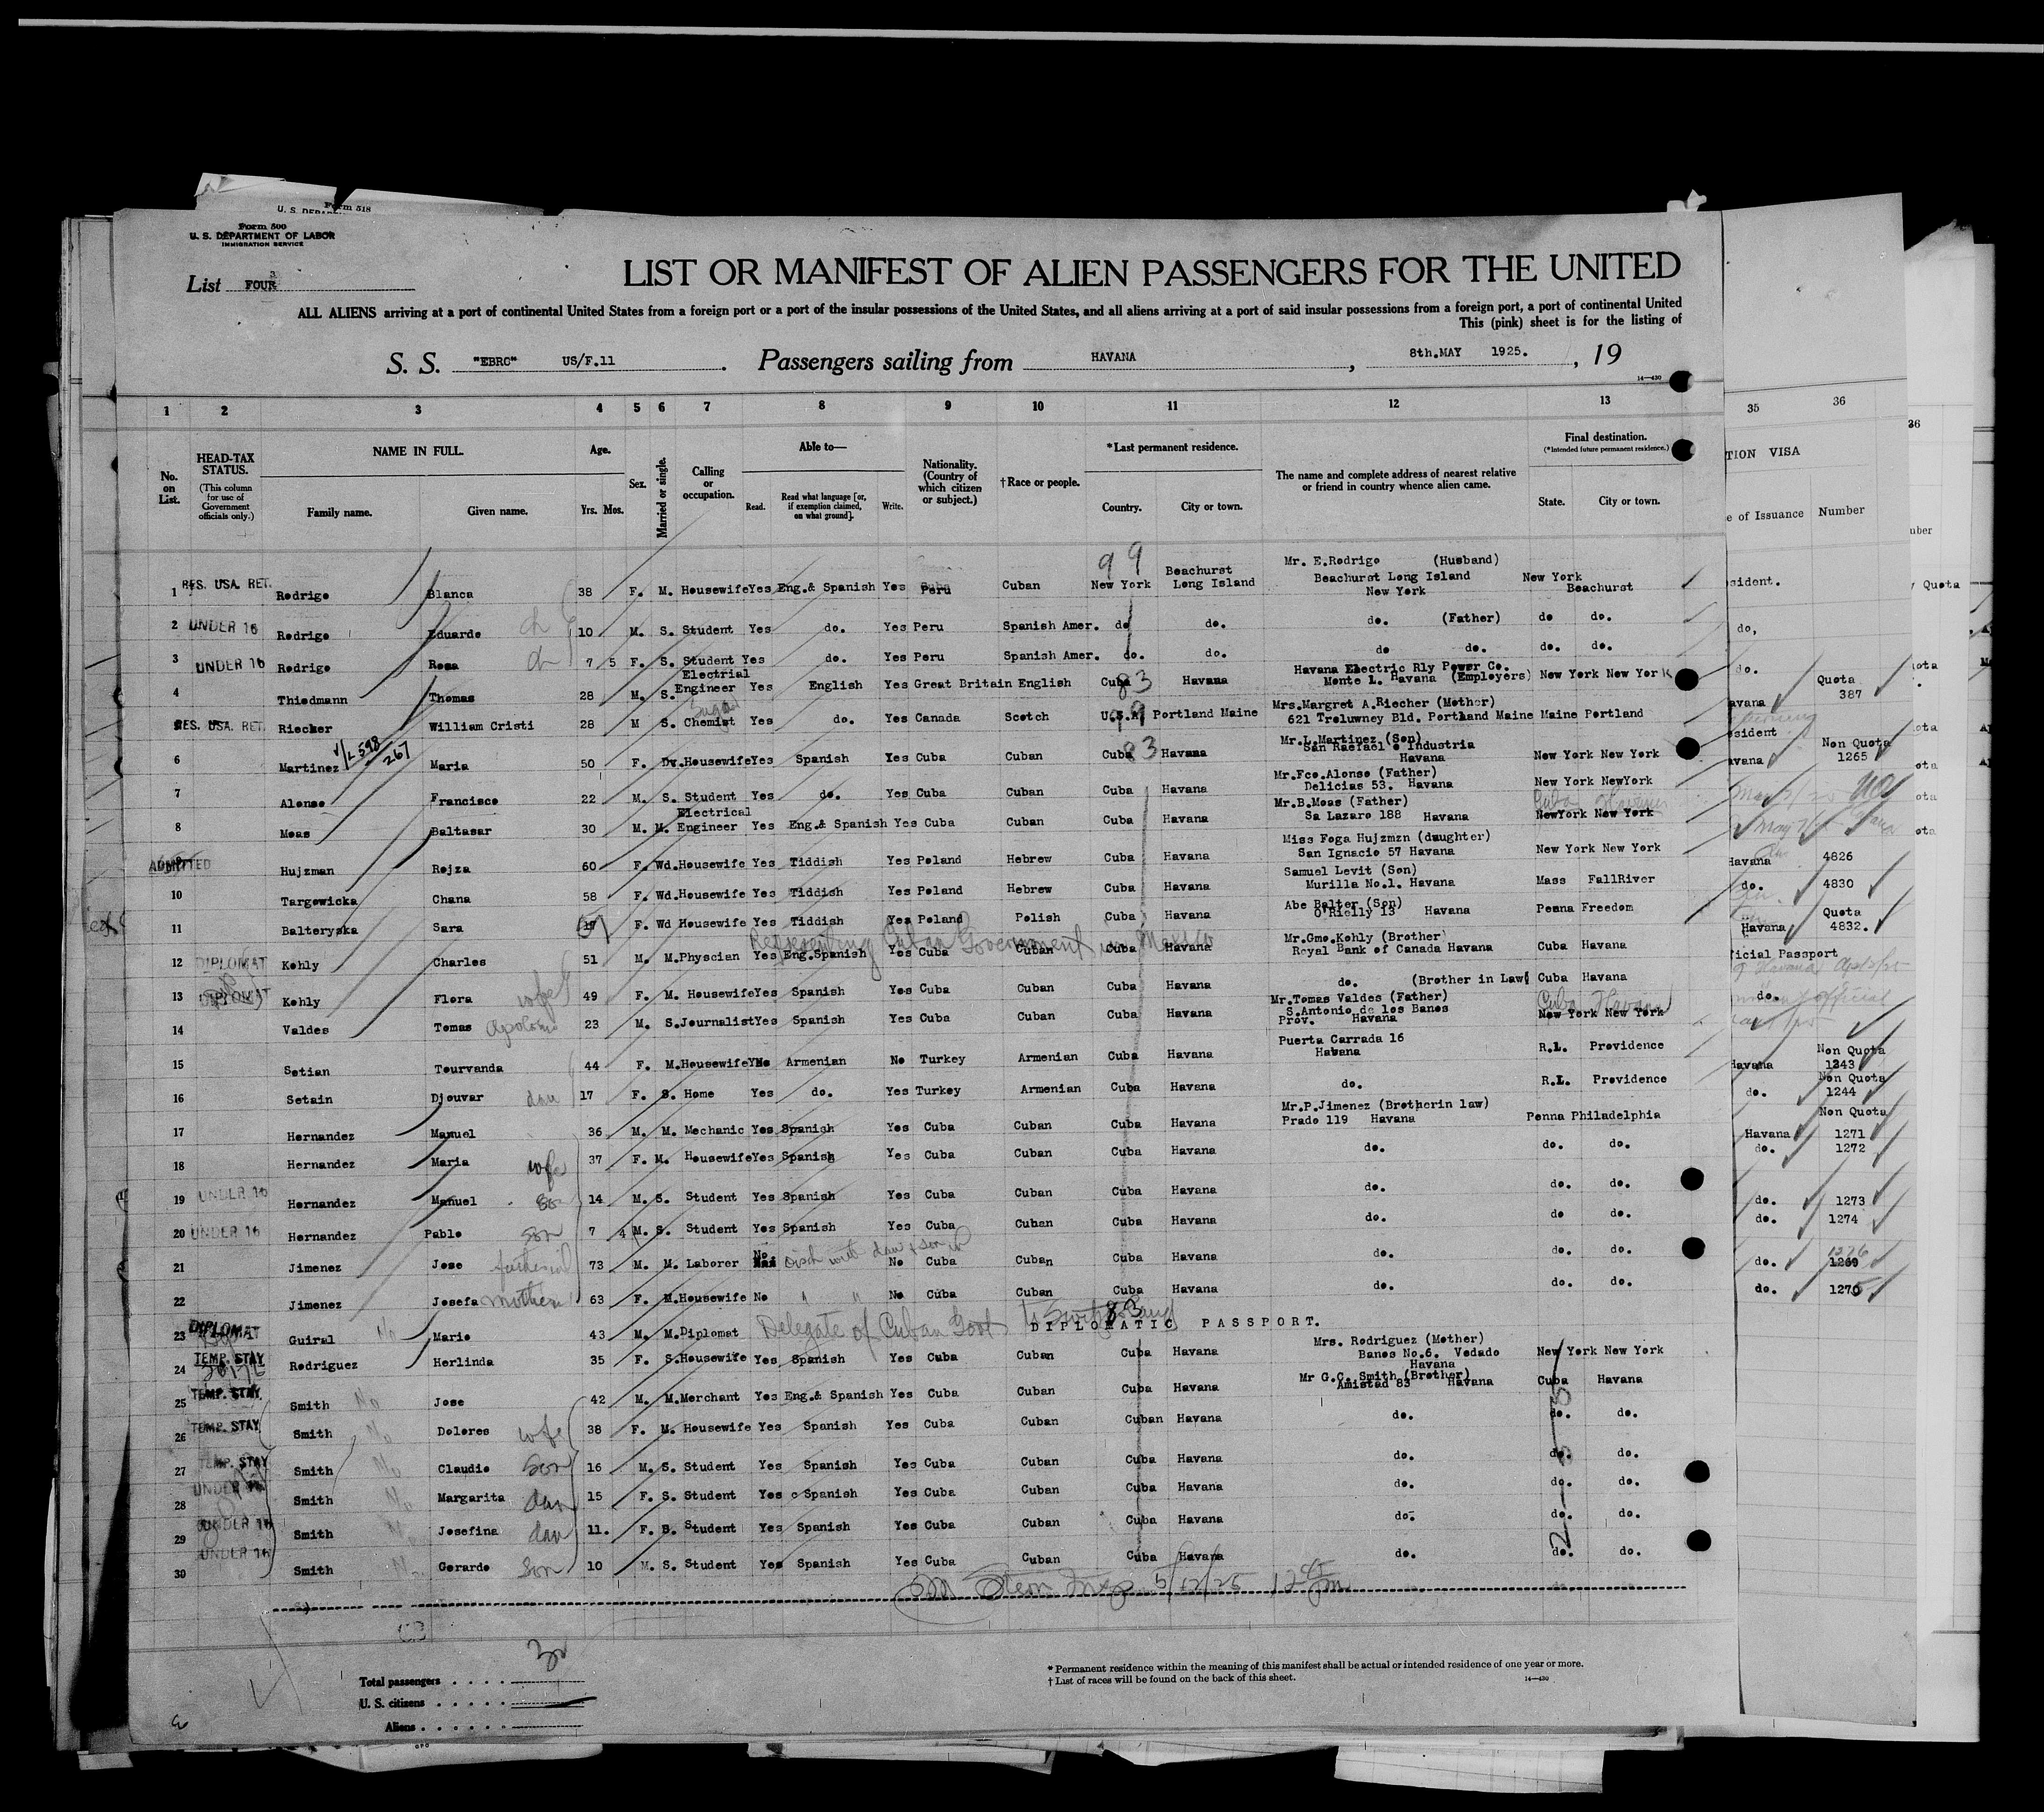 Form 518
U. S. DEPAR
Form 500
U. S. DEPARTMENT OF LABOR
IMMIGRATION SERVICE
List FOUR 3
LIST OR MANIFEST OF ALIEN PASSENGERS FOR THE UNITED
ALL ALIENS arriving at a port of continental United States from a foreign port or a port of the insular possessions of the United States, and all aliens arriving at a port of said insular possessions from a foreign port, a port of continental United
This (pink) sheet is for the listing of
S. S. "EBRO" US/F.11 . Passengers sailing from HAVANA , 8th.MAY 1925. , 19
14—430
1 2 3 4 5 6 7 8 9 10 11 12 13 35 36
No. on List. HEAD-TAX STATUS. (This column for use of Government officials only.) NAME IN FULL. Family name. Given name. Age. Yrs. Mos. Sex. Married or single. Calling or occupation. Able to— Read. Read what language [or, if exemption claimed, on what ground]. Write. Nationality. (Country of which citizen or subject.) †Race or people. *Last permanent residence. Country. City or town. The name and complete address of nearest relative or friend in country whence alien came. Final destination. (*Intended future permanent residence.) State. City or town. TION VISA e of Issuance Number
1 RES. USA. RET. Rodrigo Blanca 38 F. M. Housewife Yes Eng.& Spanish Yes Cuba Peru Cuban 99 New York Beachurst Long Island Mr. E.Rodrigo (Husband) Beachurst Long Island New York New York Beachurst sident.
2 UNDER 16 Rodrigo Eduardo ch 10 M. S. Student Yes do. Yes Peru Spanish Amer. do do. do. (Father) do do. do,
3 UNDER 16 Rodrigo Rosa ch 7 5 F. S. Student Yes do. Yes Peru Spanish Amer. do. do. do do. do. do. do.
4 Thiedmann Thomas 28 M. S. Electrial Engineer Yes English Yes Great Britain English Cuba 83 Havana Havana Electric Rly Power Co. Monte 1. Havana (Employers) New York New York avana Quota 387
RES. USA. RET. Riecher William Cristi 28 M S. Sugar Chemist Yes do. Yes Canada Scotch U.S.A. 99 Portland Maine Mrs.Margret A.Riecher (Mother) 621 Treluwney Bld. Portland Maine Maine Portland sident
6 Martinez V/L 598/267 Maria 50 F. Dv. Housewife Yes Spanish Yes Cuba Cuban Cuba 83 Havana Mr.L.Martinez (Son) San Raefael e Industria Havana New York New York avana Non Quota 1265
7 Alonso Francisco 22 M. S. Student Yes do. Yes Cuba Cuban Cuba Havana Mr.Fco.Alonso (Father) Delicias 53. Havana New York NewYork
8 Moas Baltasar 30 M. M. Electrical Engineer Yes Eng.& Spanish Yes Cuba Cuban Cuba Havana Mr.B.Moas (Father) Sa Lazaro 188 Havana Cuba Havana NewYork New York
ADMITTED Hujzman Rojza 60 F. Wd. Housewife Yes Tiddish Yes Poland Hebrew Cuba Havana Miss Foga Hujzmzn (daughter) San Ignacio 57 Havana New York New York Havana 4826
10 Targowicka Chana 58 F. Wd. Housewife Yes Tiddish Yes Poland Hebrew Cuba Havana Samuel Levit (Son) Murilla No.1. Havana Mass FallRiver do. 4830
11 Balteryska Sara 57 F. Wd Housewife Yes Tiddish Yes Poland Polish Cuba Havana Abe Balter (Son) O'Rielly 13 Havana Penna Freedom Havana Quota 4832.
Representing Cuban Government in Mexico
12 DIPLOMAT Kohly Charles 51 M. M. Physcian Yes Eng.Spanish Yes Cuba Cuban Cuba Havana Mr.Gmo.Kohly (Brother) Royal Bank of Canada Havana Cuba Havana ficial Passport
13 DIPLOMAT Kohly Flora wife 49 F. M. Housewife Yes Spanish Yes Cuba Cuban Cuba Havana do. (Brother in Law) Cuba Havana do.
14 Valdes Tomas Apolonio 23 M. S. Journalist Yes Spanish Yes Cuba Cuban Cuba Havana Mr.Tomas Valdes (Father) S.Antonio de los Banos Prov. Havana Cuba Havana New York New York
15 Setian Tourvanda 44 F. M. Housewife No Armenian No Turkey Armenian Cuba Havana Puerta Carrada 16 Havana R.I. Providence Havana Non Quota 1243
16 Setain Djouvar dau 17 F. S. Home Yes do. Yes Turkey Armenian Cuba Havana do. R.I. Providence do. Non Quota 1244
17 Hernandez Manuel 36 M. M. Mechanic Yes Spanish Yes Cuba Cuban Cuba Havana Mr.P.Jimenez (Brotherin law) Prado 119 Havana Penna Philadelphia Havana Non Quota 1271
18 Hernandez Maria wife 37 F. M. Housewife Yes Spanish Yes Cuba Cuban Cuba Havana do. do. do. do. 1272
19 UNDER 16 Hernandez Manuel son 14 M. S. Student Yes Spanish Yes Cuba Cuban Cuba Havana do. do. do. do. 1273
20 UNDER 16 Hernandez Pablo son 7 4 M. S. Student Yes Spanish Yes Cuba Cuban Cuba Havana do. do do. do. 1274
21 Jimenez Jose 73 M. M. Laborer No. No Cuba Cuban Cuba Havana do. do. do. do. 1276 1269
22 Jimenez Josefa mother 63 F. M. Housewife No " " No Cuba Cuban Cuba Havana do. do. do. do. 1275
23 DIPLOMAT Guiral No Mario 43 M. M. Diplomat Delegate of Cuban Govt to Switzerland 83 DIPLOMATIC PASSPORT.
24 TEMP. STAY Rodriguez Herlinda 35 F. S. Housewife Yes Spanish Yes Cuba Cuban Cuba Havana Mrs. Rodriguez (Mother) Banos No.6. Vedado Havana New York New York
25 TEMP. STAY Smith No Jose 42 M. M. Merchant Yes Eng.& Spanish Yes Cuba Cuban Cuba Havana Mr G.C. Smith (Brother) Amistad 83 Havana Cuba Havana
26 TEMP. STAY Smith No Dolores wife 38 F. M. Housewife Yes Spanish Yes Cuba Cuban Cuban Havana do. do. do.
27 TEMP. STAY Smith No Claudio Son 16 M. S. Student Yes Spanish Yes Cuba Cuban Cuba Havana do. do. do.
28 UNDER 16 Smith No Margarita dau 15 F. S. Student Yes Spanish Yes Cuba Cuban Cuba Havana do. do. do.
29 UNDER 16 Smith Josefina dau 11. F. S. Student Yes Spanish Yes Cuba Cuban Cuba Havana do. do. do.
30 UNDER 16 Smith Gerardo Son 10 M. S. Student Yes Spanish Yes Cuba Cuban Cuba Havana do. do. do.
5/12/25 12 45 pm
Total passengers 30
U. S. citizens
Aliens
* Permanent residence within the meaning of this manifest shall be actual or intended residence of one year or more.
† List of races will be found on the back of this sheet.
14—430